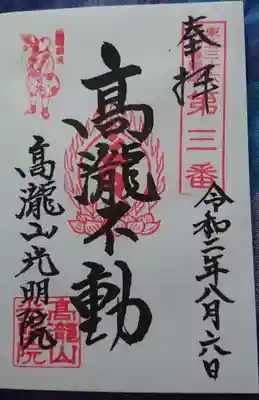 奉拝
第三番
令和二年八月六日
高瀧不動
高瀧山光明院